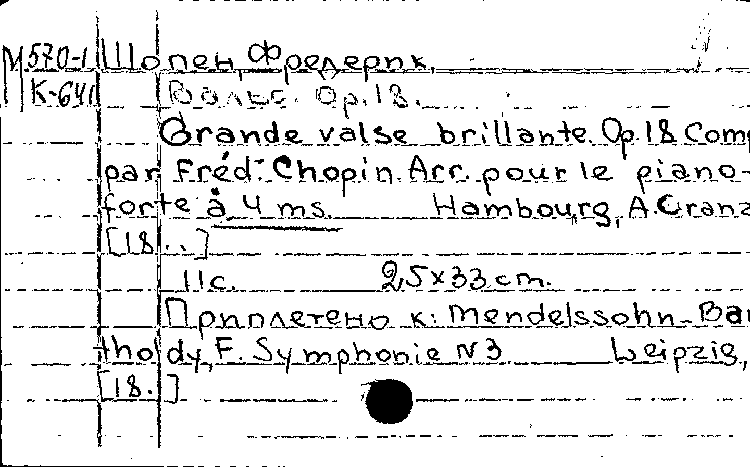 М570-1 Шопен, Фредерик.
К-641 Вальс. Op.18.
Grande valse brillante. Op.18 Comp
par Fréd. Chopin. Arr. pour le piano-
forte à 4 ms. Hambourg, A. Cranz
[18..]
11с. 25x33 cm.
Приплетено к: Mendelssohn-Bar
tholdy, F. Symphonie N3 Leipzig,
[18.]